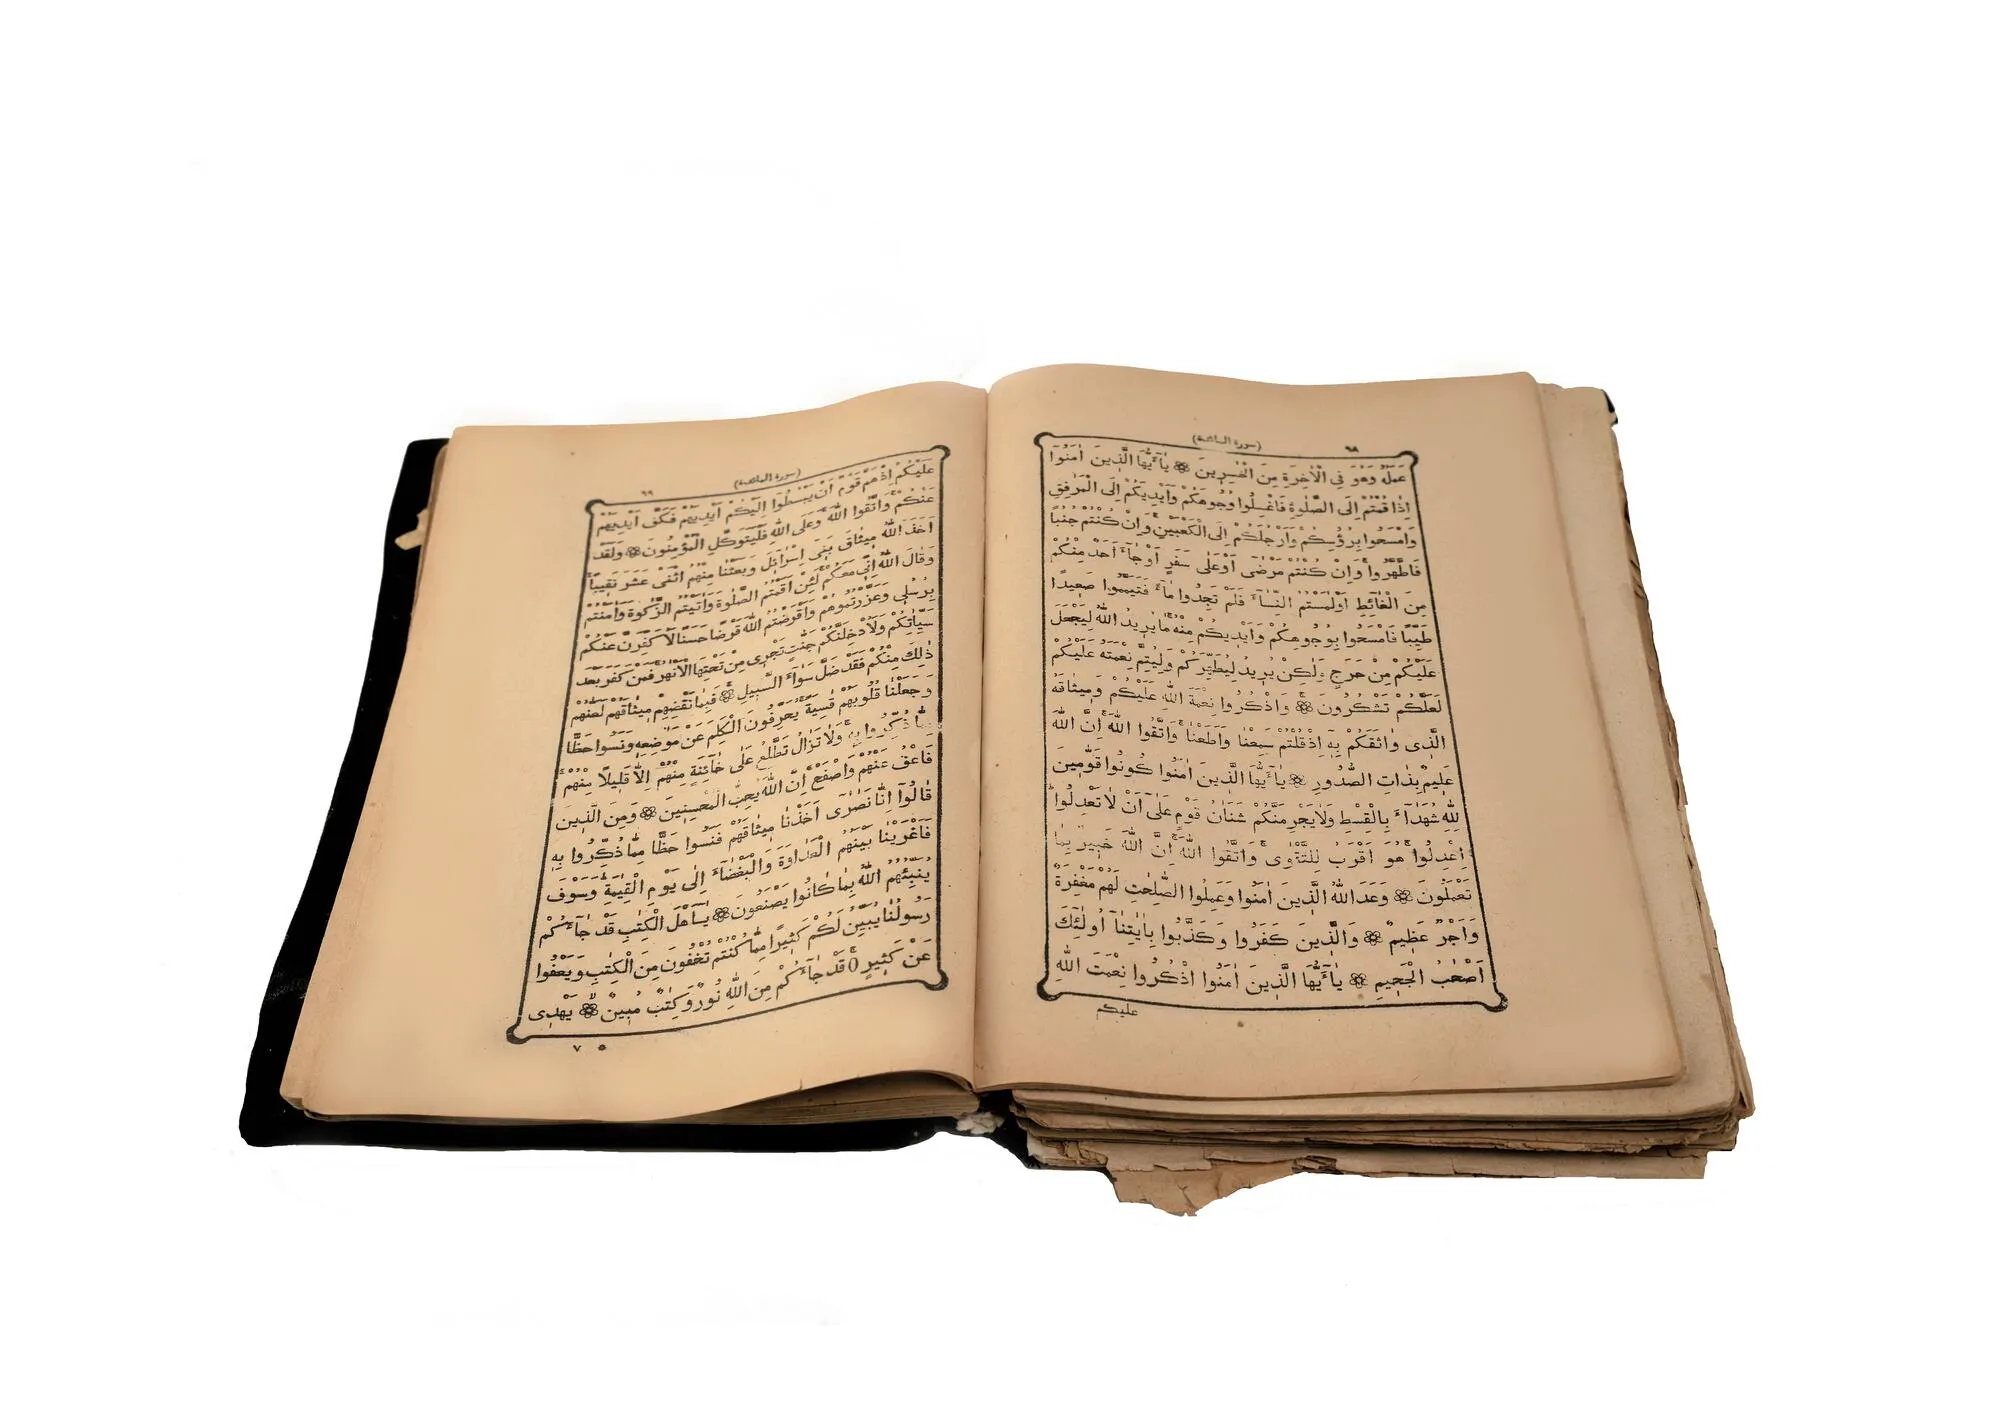 ٦٨
(سورة المائدة)
عَمَلُهُ وَهُوَ فِي الْاٰخِرَةِ مِنَ الْخٰسِرِينَ ۞ يَٓا اَيُّهَا الَّذِينَ اٰمَنُٓوا
اِذَا قُمْتُمْ اِلَى الصَّلٰوةِ فَاغْسِلُوا وُجُوهَكُمْ وَاَيْدِيَكُمْ اِلَى الْمَرَافِقِ
وَامْسَحُوا بِرُؤُسِكُمْ وَاَرْجُلَكُمْ اِلَى الْكَعْبَيْنِ وَاِنْ كُنْتُمْ جُنُبًا
فَاطَّهَّرُوا وَاِنْ كُنْتُمْ مَرْضٰٓى اَوْ عَلٰى سَفَرٍ اَوْ جَٓاءَ اَحَدٌ مِنْكُمْ
مِنَ الْغَٓائِطِ اَوْ لٰمَسْتُمُ النِّسَٓاءَ فَلَمْ تَجِدُوا مَٓاءً فَتَيَمَّمُوا صَعِيدًا
طَيِّبًا فَامْسَحُوا بِوُجُوهِكُمْ وَاَيْدِيكُمْ مِنْهُ مَا يُرِيدُ اللّٰهُ لِيَجْعَلَ
عَلَيْكُمْ مِنْ حَرَجٍ وَلٰكِنْ يُرِيدُ لِيُطَهِّرَكُمْ وَلِيُتِمَّ نِعْمَتَهُ عَلَيْكُمْ
لَعَلَّكُمْ تَشْكُرُونَ ۞ وَاذْكُرُوا نِعْمَةَ اللّٰهِ عَلَيْكُمْ وَمِيثَاقَهُ
الَّذِى وَاثَقَكُمْ بِهِٓ اِذْ قُلْتُمْ سَمِعْنَا وَاَطَعْنَا وَاتَّقُوا اللّٰهَ اِنَّ اللّٰهَ
عَلِيمٌ بِذَاتِ الصُّدُورِ ۞ يَٓا اَيُّهَا الَّذِينَ اٰمَنُوا كُونُوا قَوَّامِينَ
لِلّٰهِ شُهَدَٓاءَ بِالْقِسْطِ وَلَا يَجْرِمَنَّكُمْ شَنَاٰنُ قَوْمٍ عَلٰٓى اَنْ لَا تَعْدِلُوا
اِعْدِلُوا هُوَ اَقْرَبُ لِلتَّقْوٰى وَاتَّقُوا اللّٰهَ اِنَّ اللّٰهَ خَبِيرٌ بِمَا
تَعْمَلُونَ ۞ وَعَدَ اللّٰهُ الَّذِينَ اٰمَنُوا وَعَمِلُوا الصَّالِحَاتِ لَهُمْ مَغْفِرَةٌ
وَاَجْرٌ عَظِيمٌ ۞ وَالَّذِينَ كَفَرُوا وَكَذَّبُوا بِاٰيَاتِنَٓا اُولٰٓئِكَ
اَصْحَابُ الْجَحِيمِ ۞ يَٓا اَيُّهَا الَّذِينَ اٰمَنُوا اذْكُرُوا نِعْمَتَ اللّٰهِ
عليكم
(سورة المائدة)
٦٩
عَلَيْكُمْ اِذْ هَمَّ قَوْمٌ اَنْ يَبْسُطُٓوا اِلَيْكُمْ اَيْدِيَهُمْ فَكَفَّ اَيْدِيَهُمْ
عَنْكُمْ وَاتَّقُوا اللّٰهَ وَعَلَى اللّٰهِ فَلْيَتَوَكَّلِ الْمُؤْمِنُونَ ۞ وَلَقَدْ
اَخَذَ اللّٰهُ مِيثَاقَ بَنِٓى اِسْرَٓائِلَ وَبَعَثْنَا مِنْهُمُ اثْنَىْ عَشَرَ نَقِيبًا
وَقَالَ اللّٰهُ اِنِّى مَعَكُمْ لَئِنْ اَقَمْتُمُ الصَّلٰوةَ وَاٰتَيْتُمُ الزَّكٰوةَ وَاٰمَنْتُمْ
بِرُسُلِى وَعَزَّرْتُمُوهُمْ وَاَقْرَضْتُمُ اللّٰهَ قَرْضًا حَسَنًا لَاُكَفِّرَنَّ عَنْكُمْ
سَيِّاٰتِكُمْ وَلَاُدْخِلَنَّكُمْ جَنَّاتٍ تَجْرِى مِنْ تَحْتِهَا الْاَنْهَارُ فَمَنْ كَفَرَ بَعْدَ
ذٰلِكَ مِنْكُمْ فَقَدْ ضَلَّ سَوَٓاءَ السَّبِيلِ ۞ فَبِمَا نَقْضِهِمْ مِيثَاقَهُمْ لَعَنَّاهُمْ
وَجَعَلْنَا قُلُوبَهُمْ قَاسِيَةً يُحَرِّفُونَ الْكَلِمَ عَنْ مَوَاضِعِهِ وَنَسُوا حَظًّا
مِمَّا ذُكِّرُوا بِهِ وَلَا تَزَالُ تَطَّلِعُ عَلٰى خَٓائِنَةٍ مِنْهُمْ اِلَّا قَلِيلًا مِنْهُمْ
فَاعْفُ عَنْهُمْ وَاصْفَحْ اِنَّ اللّٰهَ يُحِبُّ الْمُحْسِنِينَ ۞ وَمِنَ الَّذِينَ
قَالُٓوا اِنَّا نَصَارٰٓى اَخَذْنَا مِيثَاقَهُمْ فَنَسُوا حَظًّا مِمَّا ذُكِّرُوا بِهِ
فَاَغْرَيْنَا بَيْنَهُمُ الْعَدَاوَةَ وَالْبَغْضَٓاءَ اِلٰى يَوْمِ الْقِيٰمَةِ وَسَوْفَ
يُنَبِّئُهُمُ اللّٰهُ بِمَا كَانُوا يَصْنَعُونَ ۞ يَٓا اَهْلَ الْكِتَابِ قَدْ جَٓاءَكُمْ
رَسُولُنَا يُبَيِّنُ لَكُمْ كَثِيرًا مِمَّا كُنْتُمْ تُخْفُونَ مِنَ الْكِتَابِ وَيَعْفُوا
عَنْ كَثِيرٍ قَدْ جَٓاءَكُمْ مِنَ اللّٰهِ نُورٌ وَكِتَابٌ مُبِينٌ ۞ يَهْدِى
٥ ٧